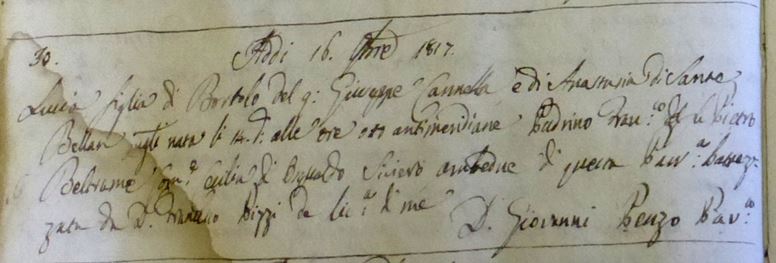 30.
Addi 16. 9bre 1817.
Lucia figlia di Bortolo del q: Giuseppe Cannella e di Anastasia di Sante
Bellan nata li 14. d: alle ore otto antimeridiane Padrino Fran:co di Pietro
Beltrame Com:e Giulia di Osvaldo Sciero ambedue di questa Parr:a battez-
zata da D. Pizzi da lic:a di me
D. Giovanni Penzo Par:co